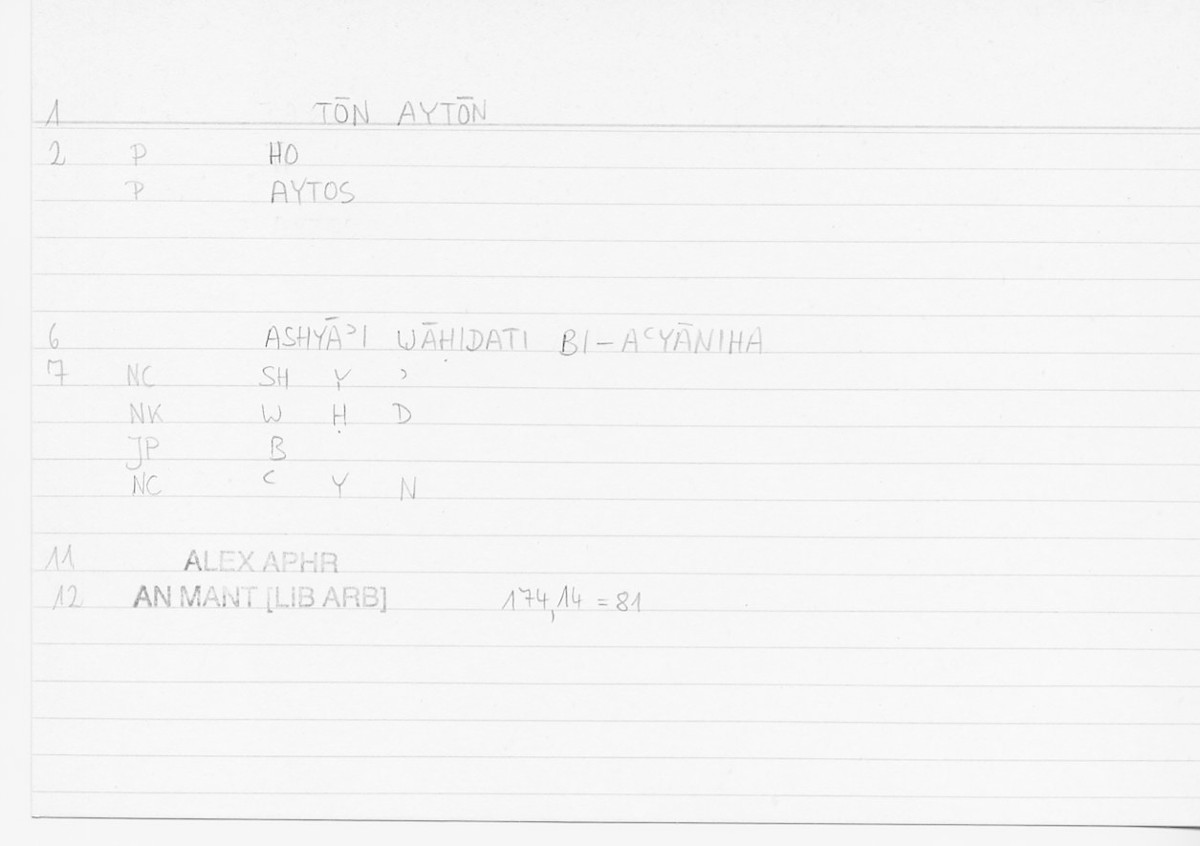 1 TŌN AYTŌN
2 P HO
P AYTOS
6 ASHYĀʾI WĀḤIDATI BI-AʿYĀNIHA
7 NC SH Y ʾ
NK W Ḥ D
JP B
NC ʿ Y N
11 ALEX APHR
12 AN MANT [LIB ARB] 174,14 = 81